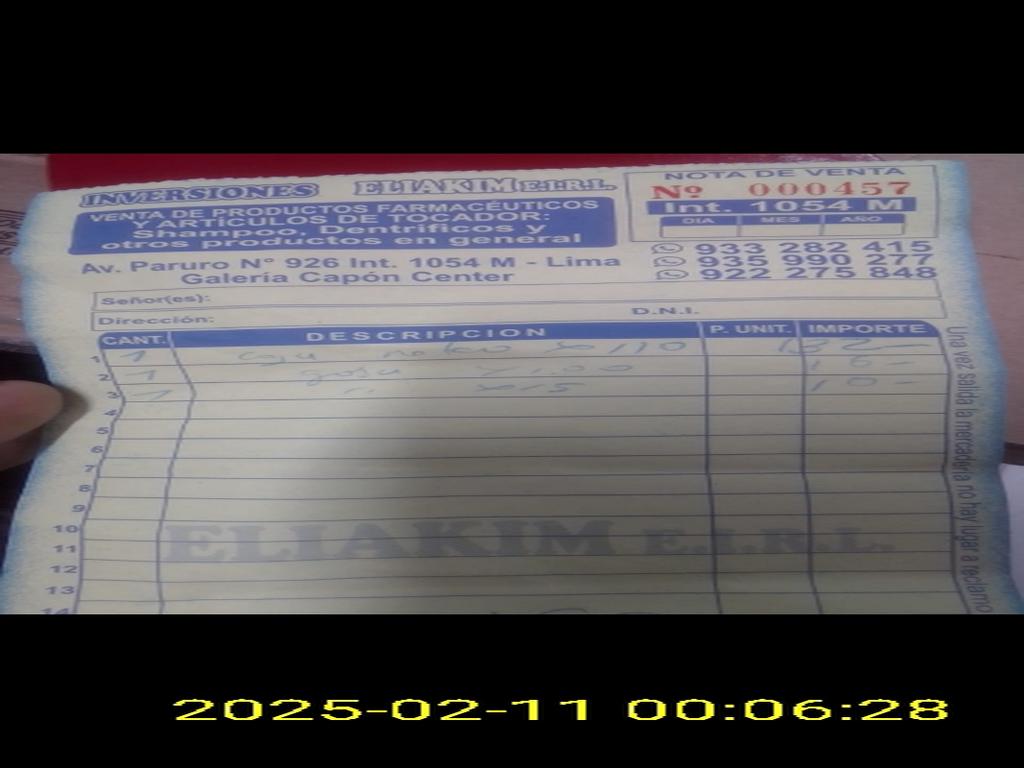 INVERSIONES ELIAKIM E.I.R.L.
VENTA DE PRODUCTOS FARMACÉUTICOS
Y ARTÍCULOS DE TOCADOR:
Shampoo, Dentrificos y
otros productos en general
Av. Paruro N° 926 Int. 1054 M - Lima
Galería Capón Center
NOTA DE VENTA
Nº 000457
Int. 1054 M
DIA MES AÑO
933 282 415
935 990 277
922 275 848
Señor(es):
Dirección: D.N.I.
CANT. DESCRIPCION P. UNIT. IMPORTE
1 1 132-
2 1 16-
3 1 10-
4
5
6
7
8
9
10
11
12
13
14
ELIAKIM E.I.R.L.
Una vez salida la mercadera no hay lugar a reclamo
2025-02-11 00:06:28